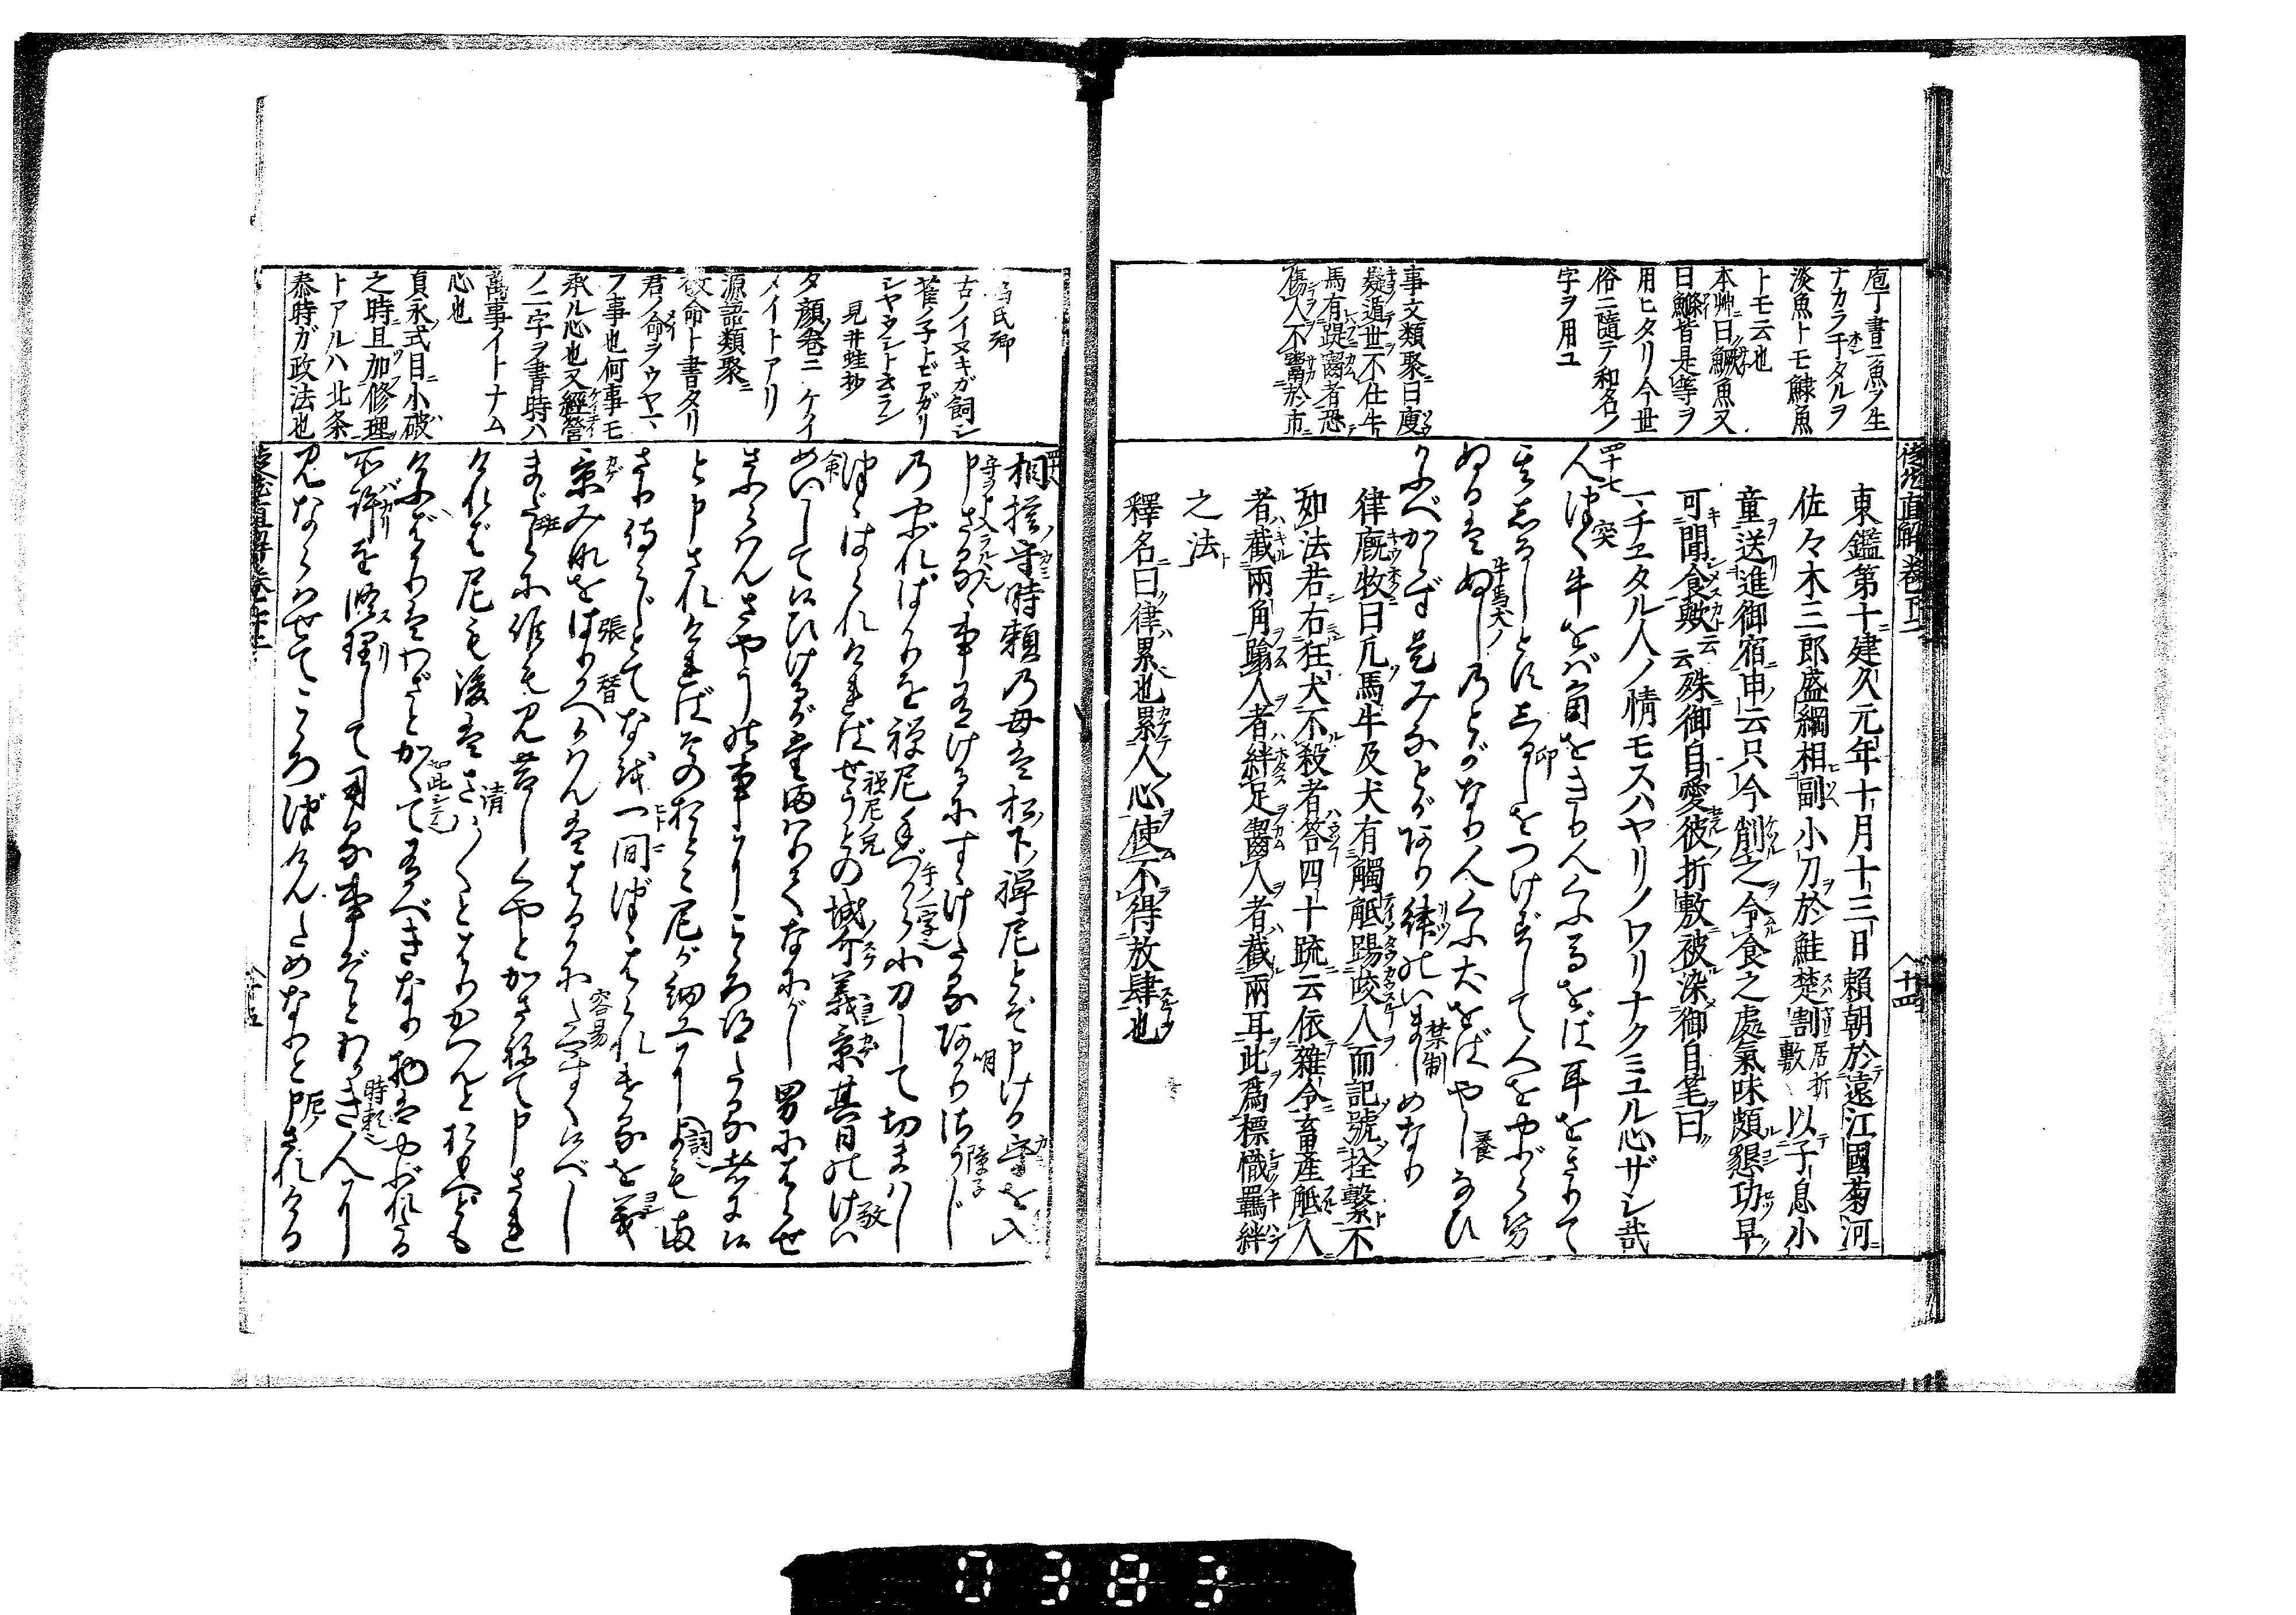 庖丁書ニ魚ノ生
ナカラ干タルヲ
淡魚トモ鯟魚
トモ云也
本艸曰鱖魚又
曰鰷皆是等ヲ
用ヒタリ今世
俗ニ隨テ和名ノ
字ヲ用ユ
事文類聚曰庾
嶷遁世不仕牛
馬有踶齧者恐
傷人不鬻於市
東鑑第十建久元年十月十三日賴朝於遠江國菊河
佐々木三郎盛綱相副小刀於鮭楚割居折敷以子息小
童送進御宿申云只今削之令食之處氣味頗懇功早
可聞食歟云云殊御自愛彼折敷被染御自筆曰
一チエタル人ノ情モスハヤリノワリナクミユル心ザシ哉
四十七
人つく牛をバ角をきり人くふ馬をば耳をきりて
其しるしとすしるしをつけずして人をやぶらせ
ぬるはぬしのとがなり人くふ犬をばやしなひ
かふべからず是みなとがあり律のいましめなり
律廐牧曰凡馬牛及犬有觸觝踢咬人而記號拴繫不
如法若右狂犬不殺者笞四十䟽云依雜令畜產觝人
者截兩角蹹人者絆足齧人者截兩耳此爲標幟羈絆
之法
釋名曰律累也累人心使不得放肆也
徒然直解
十四
爲氏卿
古ノイヌキガ飼シ
雀ノ子トビアガリ
シヤウシト云ラン
見井蛙抄
夕顏卷ニケイ
メイトアリ
源語類聚ニ
敬命ト書タリ
君ノ命ヲウヤマ
フ事也何事モ
承ル心也又經營
ノ二字ヲ書時ハ
萬事イトナム
心也
貞永式目小破
之時且加修理
トアルハ北条
泰時ガ政法也
相摸守時賴の母は松下禪尼とぞ申ける守を入
申さるゝ事有けるにすゝけたるあかりさうじ
のやぶればかりを禪尼手づから小刀して切まハし
つゝはられければせうとの城介義景其日のけい
めいして候ひけるが給ハりてなにがし男にはらせ
候ハんさやうの事に心得たる者に候
と申されければ其おとこ尼が細工によもま
さり侍らじとてなを一間づゝはられけるを義
景みなをはりかへ候ハんははるかにたやすく候べし
まだらに候も見苦しくやとかさねて申され
ければ尼も後はさハ〳〵とはりかへんとおもへども
けふばかりはわざとかくて有べきなり物はやぶれたる
所許を修理して用る事ぞとわかき人に
見ならハせて心つけんためなりと申されける
0383